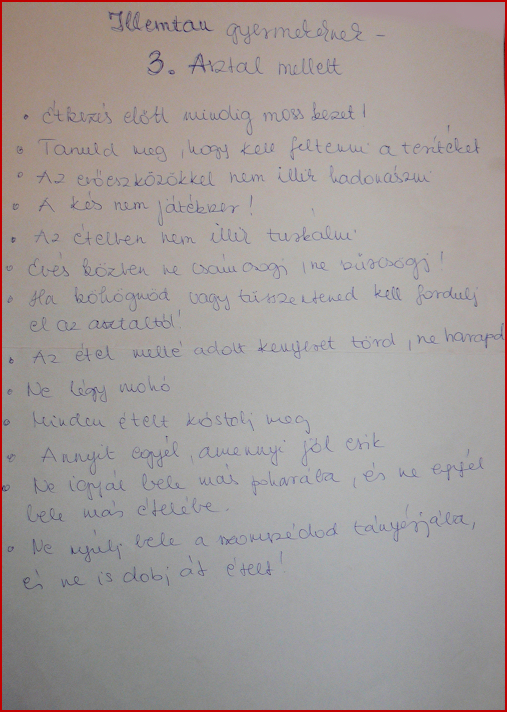 Illemtan gyermekeknek -
3. Asztal mellett
• Étkezés előtt mindig moss kezet!
• Tanuld meg, hogy kell feltenni a terítéket
• Az evőeszközökkel nem illik hadonászni
• A kés nem játékszer!
• Az ételben nem illik turkálni
• Evés közben ne csámcsogj, ne szürcsögj!
• Ha köhögnöd vagy tüsszentened kell fordulj
el az asztaltól!
• Az étel mellé adott kenyeret törd, ne harapd
• Ne légy mohó
• Minden ételt kóstolj meg
• Annyit egyél, amennyi jól esik
• Ne igyál bele más poharába, és ne egyél
bele más ételébe.
• Ne nyúlj bele a szomszédod tányérjába,
és ne is dobj át ételt!